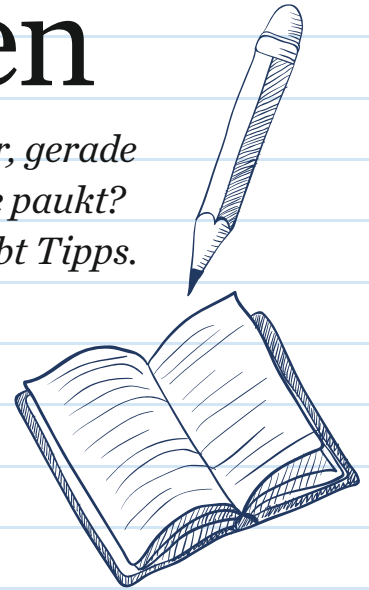 en
r, gerade
e paukt?
bt Tipps.